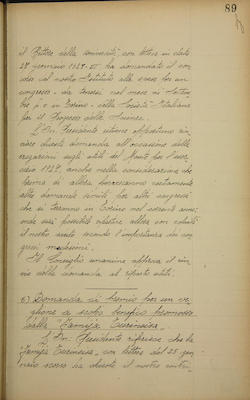 89
il Rettore della Università con lettera in data
28 gennaio 1928-VI ha domandato il con-
corso del nostro Istituto alle spese per un
congresso da tenersi nel mese di Settem-
bre p.v. in Torino della Società Italiana
per il Progresso delle Scienze.
L'On. Presidente ritiene opportuno rin-
viare questa domanda all'occasione delle
erogazioni sugli utili del Monte per l'eser-
cizio 1928, anche nella considerazione che
prima di allora perverranno certamente
altre domande simili per altri congressi
che si terranno in Torino nel corrente anno
onde sarà possibile valutare allora con
il nostro aiuto secondo l'importanza dei con-
gressi medesimi.
Il Consiglio unanime approva il rin-
vio della domanda al riparto utili.
6) Domanda di premio per un ve-
glione a scopo benefico promosso
dalla "Famija Turineisa".
L'On. Presidente riferisce che la
"Famija Turineisa" con lettera del 25 gen-
naio scorso ha chiesto il nostro